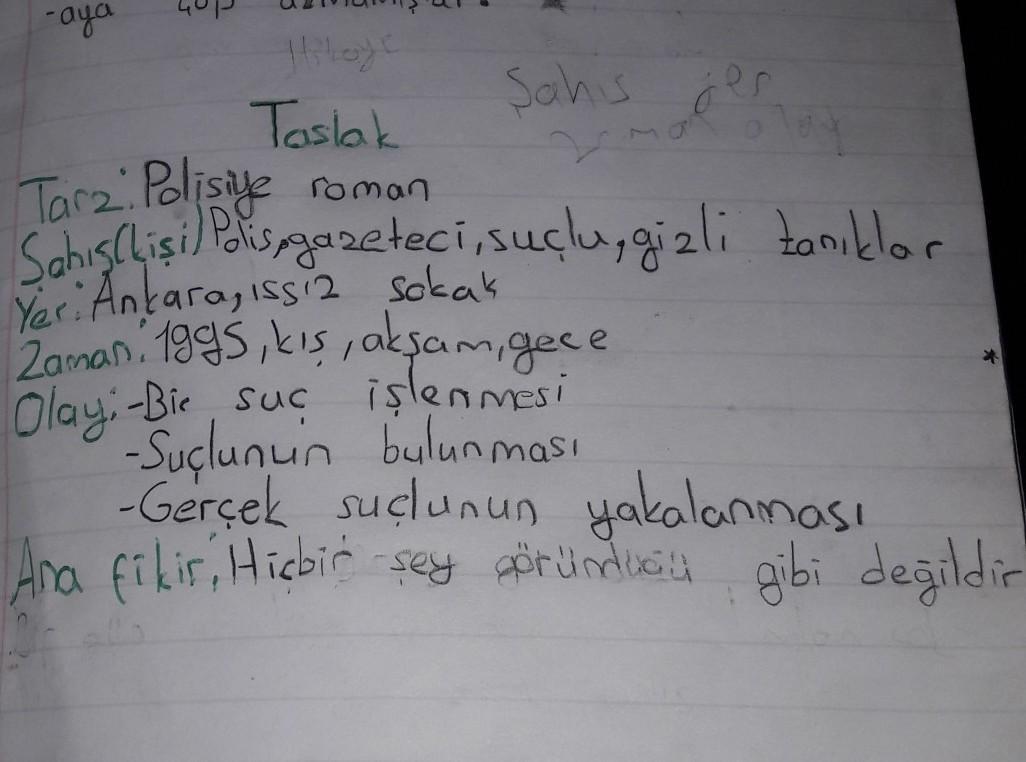 -aya
Hikaye
Şahıs yer
zaman olay
Taslak
Tarz: Polisiye roman
Şahıs(kişi) Polis, gazeteci, suçlu, gizli tanıklar
Yer: Ankara, ıssız sokak
Zaman: 1995, kış, akşam, gece
*
Olay: -Bir suç işlenmesi
-Suçlunun bulunması
-Gerçek suçlunun yakalanması
Ana fikir: Hiçbir şey göründüğü gibi değildir